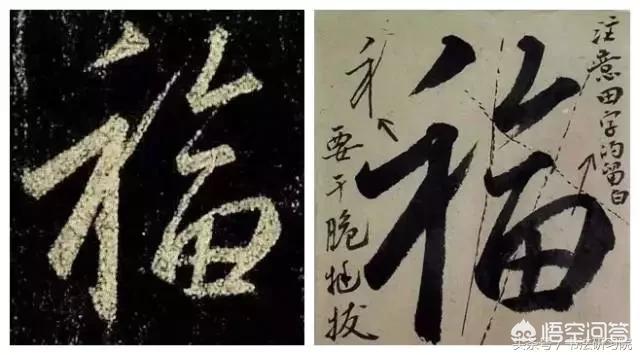 福
福
注意田字的留白
礻
要干脆挺拔
悟空问答
头条号 / 书法研习院